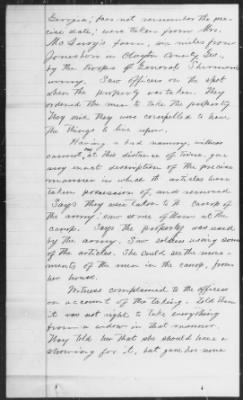 Georgia; does not remember the pre-
cise date; were taken from Mrs.
farm, six miles from
Jonesboro in Clayton County Geo.,
by the troops of General Sherman's
army. Saw officers on the spot
when the property was taken. They
ordered the men to take the property
They said they were compelled to have
the things to live upon.
Having a bad memory, witness
cannot, at this distance of time, give
any exact description of the precise
manner in which the articles were
taken possession of, and removed
Says they were taken to the camp of
the army; saw some of them at the
camp. Says the property was used
by the army. Saw soldiers using some
of the articles. She could see the move-
ments of the men in the camp, from
her house.
Witness complained to the officers
on account of the taking. Told them
it was not right to take everything
from a widow in that manner.
They told her that she should have a
for it, but gave her none